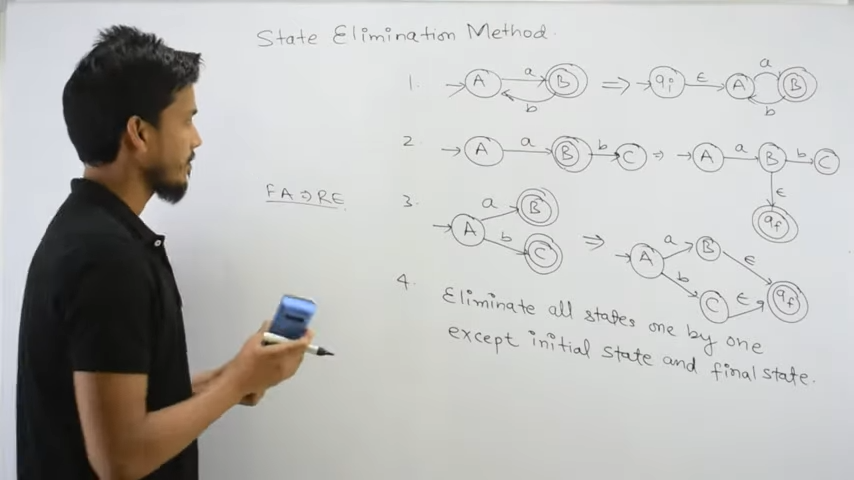 State Elimination Method
1. A a B b ⇒ qi ε A a B b
2. A a B b C ⇒ A a B b C ε qf
FA ⇒ RE
3. A a B b C ⇒ A a B ε b C ε qf
4. Eliminate all states one by one
except initial state and final state.